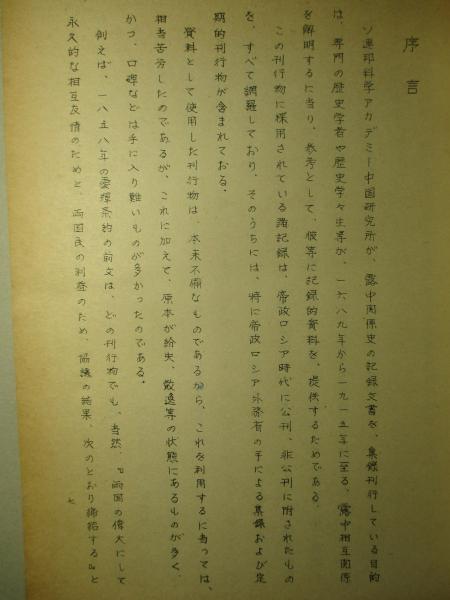 序言
ソ連邦科学アカデミー中国研究所が、露中関係史の記録文書を、集録刊行している目的
は、専門の歴史学者や歴史学々生等が、一六八九年から一九一五年に至る、露中相互関係
を解明するに当り、参考として、彼等に記録的資料を、提供するためである。
この刊行物に採用されている諸記録は、帝政ロシア時代に公刊、非公刊に附されたもの
を、すべて網羅しており、そのうちには、特に帝政ロシア外務省の手による集録および定
期的刊行物が含まれておる。
資料として使用した刊行物は、本来不備なものであるから、これを利用するに当っては、
相当苦労したのであるが、これに加えて、原本が紛失、散逸等の状態にあるものが多く、
かつ、口碑などは手に入り難いものが多かったのである。
例えば、一八五八年の愛琿条約の前文は、どの刊行物でも、当然、『両国の偉大にして
永久的な相互友情のためと、両国民の利益のため、協議の結果、次のとおり締結する』と